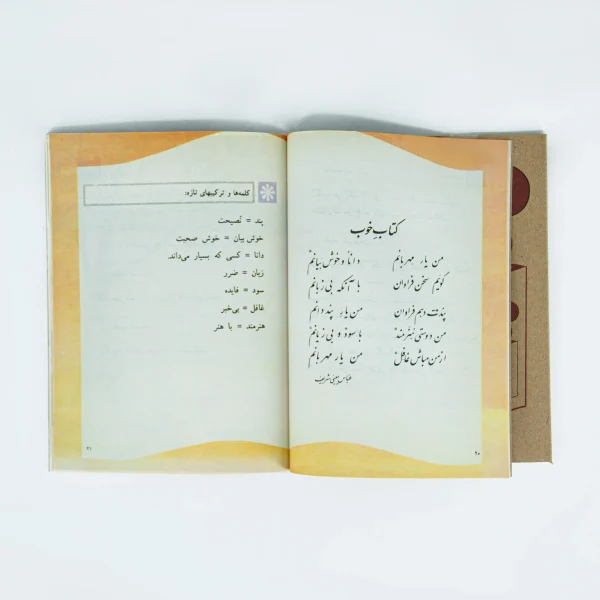 کتابِ خوب
من یار مهربانم دانا و خوش بیانم
گویم سخن فراوان با آنکه بی زبانم
پندت دهم فراوان من یارِ پند دانم
من دوستی هنرمند با سود و بی زیانم
از من مباش غافل من یار مهربانم
عباس یمینی شریف
۲۰
کلمه‌ها و ترکیبهای تازه:
پند = نصیحت
خوش بیان = خوش صحبت
دانا = کسی که بسیار می‌داند.
زیان = ضرر
سود = فایده
غافل = بی‌خبر
هنرمند = با هنر
۲۱